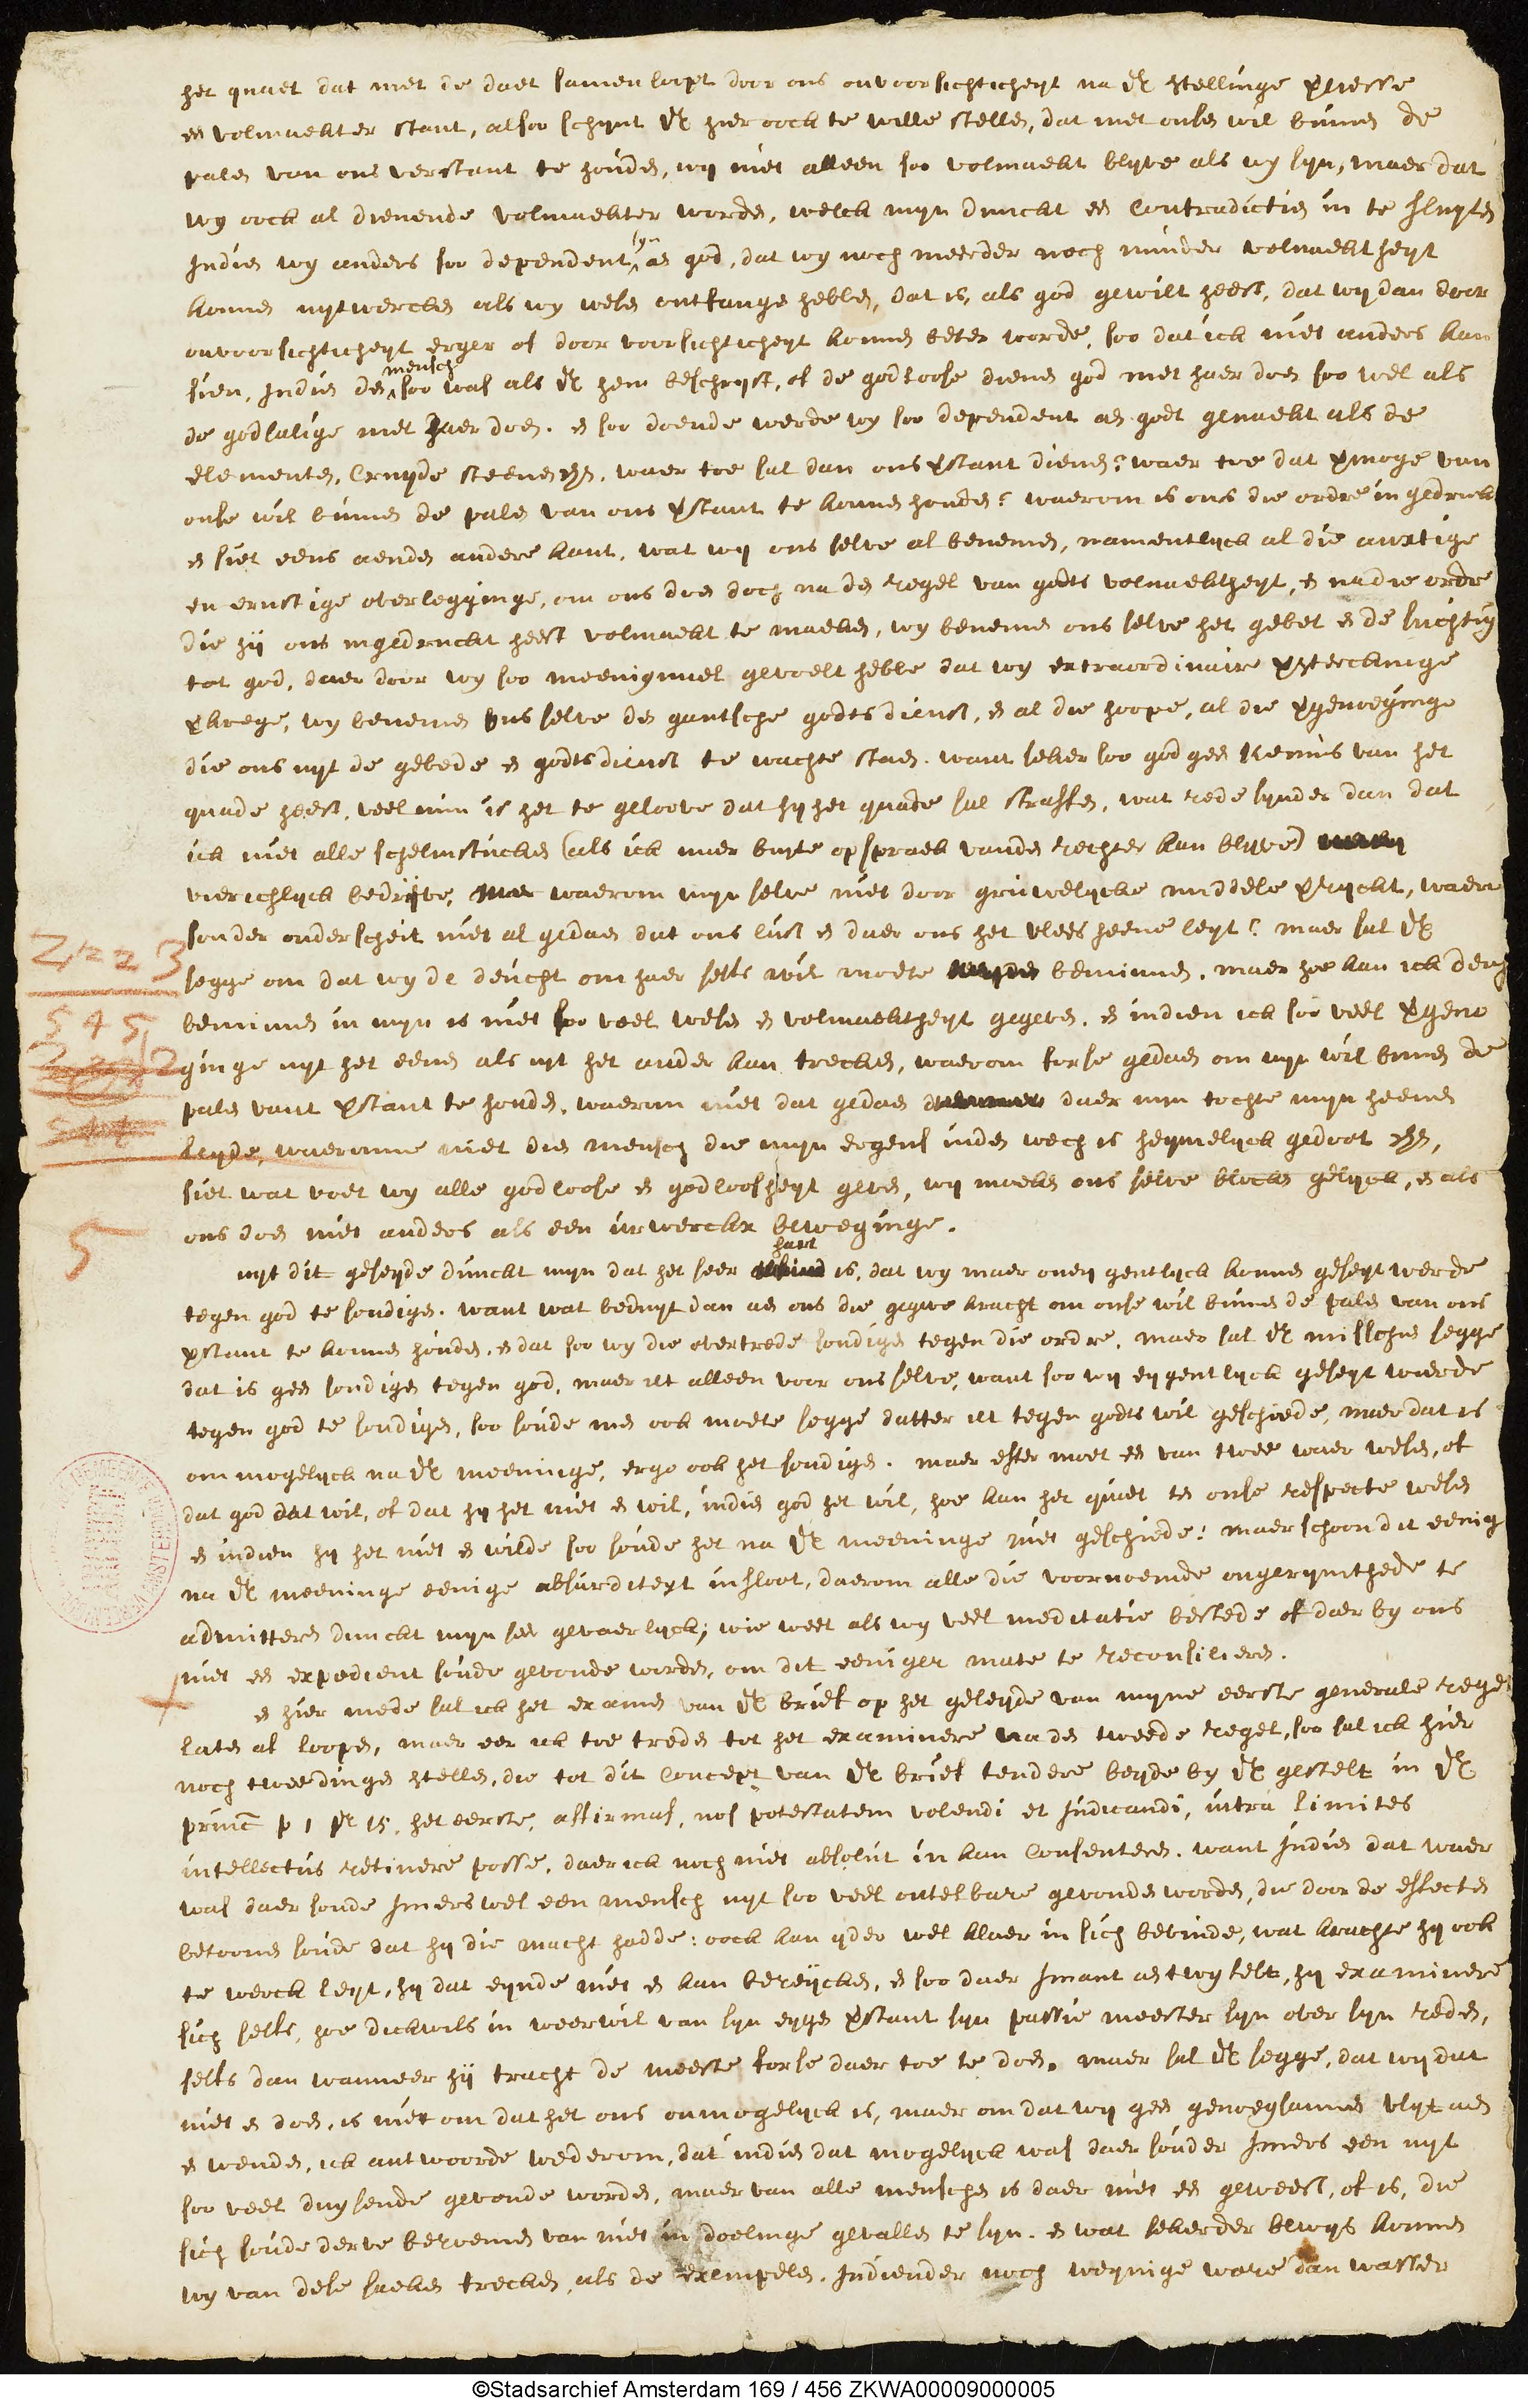 het quaet dat met de daet samen loopt door ons onvoorsichticheyt na VE stellinge
en volmaekter stant, alsoo schynt VE hier oock te wille stellen, dat met onsen wil binnen de
palen van ons verstant te houden, wy niet alleen soo volmaekt blyve als wy syn, maer dat
wy oock al dienende volmaekter worden, welck myn dunckt een Contradictien in te sluyten
Indien wy anders soo dependent syn an god, dat wy noch meerder noch minder volmaektheyt
konnen uytwercken als wy wesen ontfange hebben, dat is, als god gewilt heeft, dat wy dan door
onvoorsichticheyt erger of door voorsichticheyt konnen beter worde, soo dat ick niet anders kan
sien, Indien den mensch soo was als VE hem beschryft, of de godloose dienen god met haer doen soo wel als
de godsalige met haer doen. en soo doende werde wy soo dependent an godt gemaekt als de
elementen, Cruyde steenen etc. waer toe sal dan ons verstant dienen? waer toe dat vermoge van
onse wil binnen de palen van ons verstant te konnen houden? waerom is ons die ordre in gedruckt
en siet eens aenden andere kant, wat wy ons selve al benemen, namentlyck al die anxtige
en ernstige overlegginge, om ons doen doch na den regel van godts volmaektheyt, en na die ordre
die hy ons ingedruckt heeft volmaekt te maeken, wy benemen ons selve het gebet en de suchting
tot god, daer door wy soo meenichmael gevoelt hebbe dat wy extraordinaire versterckinge
verkrege, wy benemen ons selve den gantsche godtsdienst, en al die hoope, al die vergenoeginge
die ons uyt de gebede en godtsdienst te wachte staen. want seker soo god geen kennis van het
quade heeft, veel min is het te geloove dat hy het quade sal straffen, wat rede synder dan dat
ick niet alle schelmstucken (als ick maer buyte opspraek vanden rechter kan blyve)
vierichlyck bedryve, waerom myn selve niet door gruwelycke middele verryckt, waerom
sonder onderscheit niet al gedaen dat ons lust en daer ons het vlees heene leyt? maer sal VE
segge om dat wy de deucht om haer selfs wil moete beminnen. maer hoe kan ick deught
beminnen in myn is niet soo veel wesen en volmaektheyt gegeven. en indien ick soo veel vergeno
ginge uyt het eenen als uyt het ander kan trecken, waerom forse gedaen om myn wil binnen de
palen vant verstant te houden, waerom niet dat gedaen daer myn tochte myn heenen
leyde, waeromme niet dien mensch die myn ergens inden wech is heymelyck gedoot etc,
siet wat voet wy alle godloose en godloosheyt geven, wy maeken ons selve blocken gelyck, en als
ons doen niet anders als een urwerckx beweginge.
uyt dit geseyde dunckt myn dat het seer hart is, dat wy maer oneygentlyck konnen geseyt werde
tegen god te sondigen. want wat beduyt dan aen ons die gegeve kracht om onse wil binnen de palen van ons
verstant te konnen houden, en dat soo wy die overtrede sondigen tegen die ordre. maer sal VE misschien segge
dat is geen sondigen tegen god, maer ut alleen voor ons selve, want soo wy eygentlyck geseyt waerde
tegen god te sondigen, soo soude men ook moete segge datter ut tegen godts wil geschiede, maer dat is
onmogelyck na VE meeninge, ergo ook het sondigen. maer efter moet een van twee waer wesen, of
dat god dat wil, of dat hy het niet en wil, indien god het wil, hoe kan het quaet ten onse respecte wesen
en indien hy het niet en wilde soo soude het na VE meeninge niet geschiede: maer schoon dit eenig
na VE meeninge eenige absurditeyt insloot, daerom alle die voornoemde ongerymthede te
admitteren dunckt myn seer gevaerlyck; wie weet als wy veel meditatie bestede of daer by ons
niet een expedient soude gevonde worden, om dit eeniger mate te reconsilieren.
en hier mede sal ick het examen van VE brief op het geleyde van myne eerste generale regel
laten af loopen, maer eer ick toe treden tot het examinere na den tweede regel, soo sal ick hier
noch twee dingen stellen, die tot dit Concept van VE brief tendere beyde by VE gestelt in VE
princ p 1 pr 15. het eerste, affirmas, nos potestatem volendi et Judicandi, intra limites
intellectus retinere posse, daer ick noch niet absolut in kan Consenteren. want Indien dat waer
was daer soude Jmers wel een mensch uyt soo veel ontelbare gevonden worden, die door de effecten
betoonen soude dat hy die macht hadde: oock kan yder wel klaer in sich bevinde, wat krachte hy ook
te werck leyt, hy dat eynde niet en kan bereycken, en soo daer Jmant an twyfelt, hy examinere
sich selfs, hoe dickwils in weerwil van syn eygen verstant syn passie meester syn over syn reden,
selfs dan wanneer hy tracht de meeste forse daer toe te doen. maer sal VE segge, dat wy dat
niet en doen, is niet om dat het ons onmogelyck is, maer om dat wy geen genoegsamen vlyt aen
en wenden, ick antwoorde wederom, dat indien dat mogelyck was daer souder Jmers een uyt
soo veel duysende gevonde worden, maer van alle menschen is daer niet een geweest, of is, die
sich soude derve beroemen van niet in doelinge gevallen te syn. en wat sekerder bewys konnen
wy van dese saeken trecken, als de exempelen. Indiender noch weynige ware dan wasser